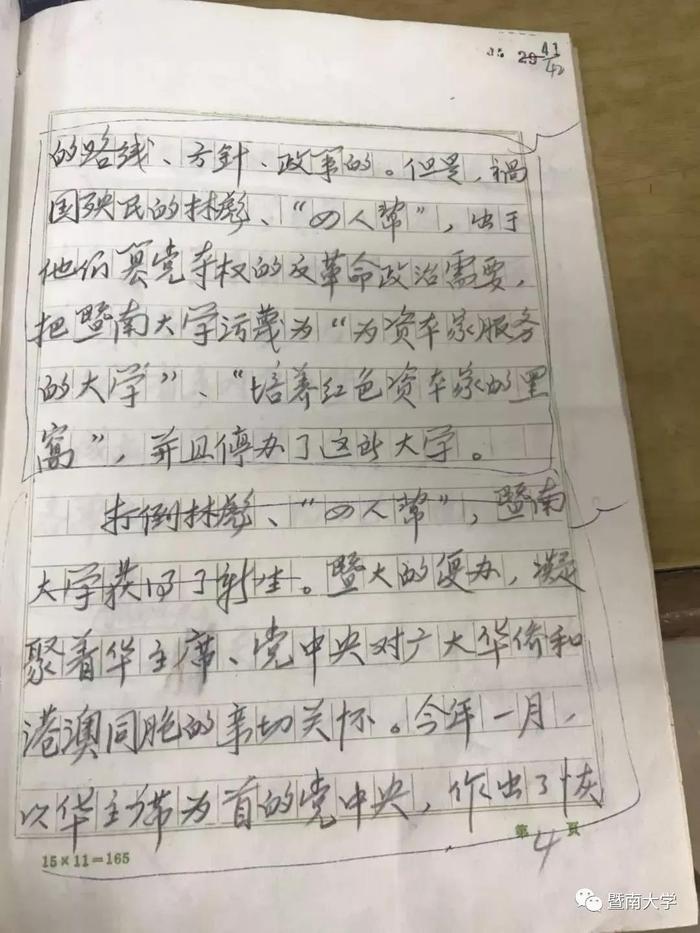 29 41/42
的路线、方針、政策的。但是，禍
国殃民的林彪、“四人幫”，出于
他们篡党夺权的反革命政治需要，
把暨南大学污蔑为“为资本家服务
的大学”、“培养红色资本家的黑
窝”，并且停办了这所大学。
打倒林彪、“四人幫”，暨南
大学获得了新生。暨大的复办，凝
聚着华主席、党中央对广大华侨和
港澳同胞的亲切关怀。今年一月，
以华主席为首的党中央，作出了恢
15×11=165
第 4 页
暨南大学